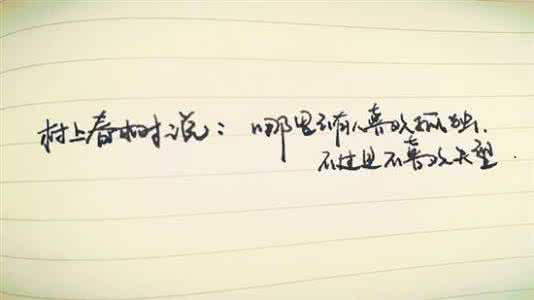 村上春树说：哪里会有人喜欢孤独，
不过是不喜欢失望.